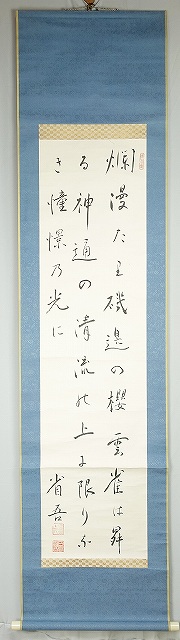 爛漫たり磯邉の櫻雲雀は昇
る神通の清流の上に限りな
き憧憬乃光に
省吾